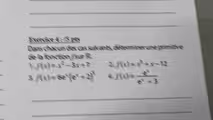 Exercice 4 : (5 pts)
Dans chacun des cas suivants, déterminer une primitive
de la fonction f sur ℝ.
1. f(x) = x² - 3x + 7 2. f(x) = x³ + x - 12
3. f(x) = 8eˣ(eˣ + 2)³ 4. f(x) = eˣ / (eˣ + 3)